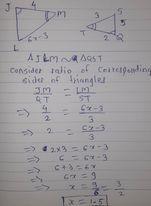 J 4 M
6x-3
L
3 S
5
T 2 Q
Δ JLM ~ Δ QST
Consider ratio of corresponding
sides of triangles
JM/QT = LM/ST
⇒ 4/2 = 6x-3/3
⇒ 2 = 6x-3/3
⇒ 2×3 = 6x-3
⇒ 6 = 6x-3
⇒ 6+3 = 6x
⇒ 6x = 9
⇒ x = 9/6 = 3/2
x = 1.5